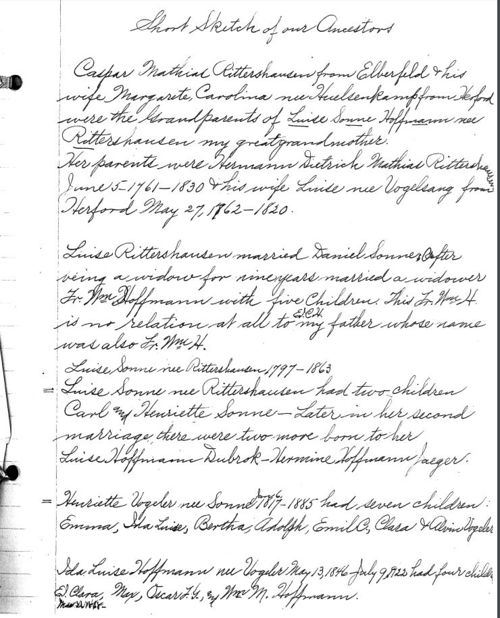 Short Sketch of our Ancestors
Caspar Mathias Rittershausen from Elberfeld & his
wife Margarete, Carolina nee Huelsenkamp from Herford
were the Grandparents of Luise Sonne Hoffmann nee
Rittershausen my greatgrandmother.
Her parents were Hermann Dietrich Mathias Rittershausen
June 5-1761-1830 & his wife Luise nee Vogelsang from
Herford May 27, 1762-1820.
Luise Rittershausen married Daniel Sonne, After
being a widow for nine years married a widower
Fr. Wm Hoffmann with five Children. This Fr. Wm H.
is no relation at all to E.C.H. my father whose name
was also Fr. Wm H.
Luise Sonne nee Rittershausen, 1797-1863
= Luise Sonne nee Rittershausen had two children
Carl and Henriette Sonne - Later in her second
marriage, there were two more born to her
Luise Hoffmann Dubrok - Hermine Hoffmann Jaeger.
= Henriette Vogeler nee Sonne 1817-1885 had seven children:
Emma, Ida Luise, Bertha, Adolph, Emil C, Clara & Alvin Vogeler
Ida Luise Hoffmann nee Vogeler May 13, 1846 July 9, 1922 had four children
E. Clara, Max, Oscar F. G., & Wm M. Hoffmann.